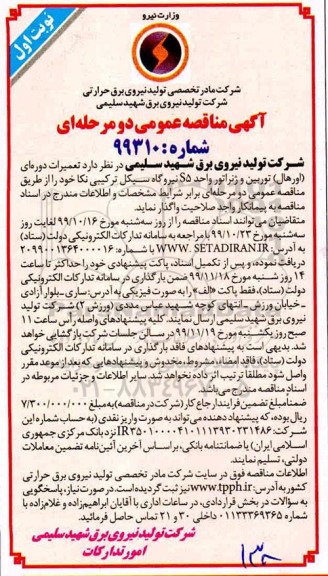 وزارت نیرو
نوبت اول
شرکت مادر تخصصی تولید نیروی برق حرارتی
شرکت تولید نیروی برق شهید سلیمی
آگهی مناقصه عمومی دو مرحله‌ای
شماره: ۹۹۳۱۰
شرکت تولید نیروی برق شهید سلیمی در نظر دارد تعمیرات دوره‌ای
(اورهال) توربین و ژنراتور واحد S5 نیروگاه سیکل ترکیبی نکا خود را از طریق
مناقصه عمومی دو مرحله‌ای برابر شرایط مشخصات و اطلاعات مندرج در اسناد
مناقصه به پیمانکار واجد صلاحیت واگذار نماید.
متقاضیان می‌توانند اسناد مناقصه را از روز سه‌شنبه مورخ ۹۹/۱۰/۱۶ لغایت روز
سه‌شنبه مورخ ۹۹/۱۰/۲۳ با مراجعه به سامانه تدارکات الکترونیکی دولت (ستاد)
به آدرس: WWW. SETADIRAN.IR با شماره: ۲۰۹۹۰۰۱۳۶۴۰۰۰۰۱۶
دریافت نموده و پس از تکمیل اسناد، پاکت پیشنهادی خود را حداکثر تا ساعت
۱۴ روز شنبه مورخ ۹۹/۱۱/۱۸ ضمن بارگذاری در سامانه تدارکات الکترونیکی
دولت (ستاد)، فقط پاکت «الف» را به صورت فیزیکی به آدرس: ساری ـ بلوار آزادی
ـ خیابان ورزش ـ انتهای کوچه شهید عباس عبدی (ورزش ۷) شرکت تولید
نیروی برق شهید سلیمی ارسال نمایند. پیشنهادهای واصله رأس ساعت ۱۱
صبح روز یکشنبه مورخ ۹۹/۱۱/۱۹ در سالن جلسات شرکت بازگشایی خواهد
شد. بدیهی است به پیشنهادهای فاقد بارگذاری در سامانه تدارکات الکترونیکی
دولت (ستاد)، فاقد امضاء، مشروط، مخدوش و پیشنهادهایی که بعد از موعد مقرر
واصل شود مطلقا ترتیب اثر داده نخواهد شد. سایر اطلاعات و جزئیات مربوطه در
اسناد مناقصه مندرج می‌باشد.
ضمنا مبلغ تضمین فرایند ارجاع کار (شرکت در مناقصه) به مبلغ ۷/۳۰۰/۰۰۰/۰۰۰
ریال بوده، که پیشنهاد دهنده می‌تواند به صورت واریز نقدی (به حساب شماره این
شرکت: نزد بانک مرکزی جمهوری
اسلامی ایران) یا ضمانتنامه بانکی، بر اساس آخرین آئین‌نامه تضمین معاملات
دولتی، تسلیم نمایند.
اطلاعات مناقصه فوق در سایت شرکت مادر تخصصی تولید نیروی برق حرارتی
کشور به آدرس: www.tpph.ir نیز ثبت گردیده است. در صورت نیاز، پاسخگویی
به سؤالات در بخش قراردادی، در ساعات اداری با آقایان ابراهیم‌زاده و غلام‌زاده با
شماره ۰۱۱۳۳۳۶۹۳۶۵ داخلی ۳۰ و ۲۱ تماس حاصل فرمائید.
شرکت تولید نیروی برق شهید سلیمی
امور تدارکات